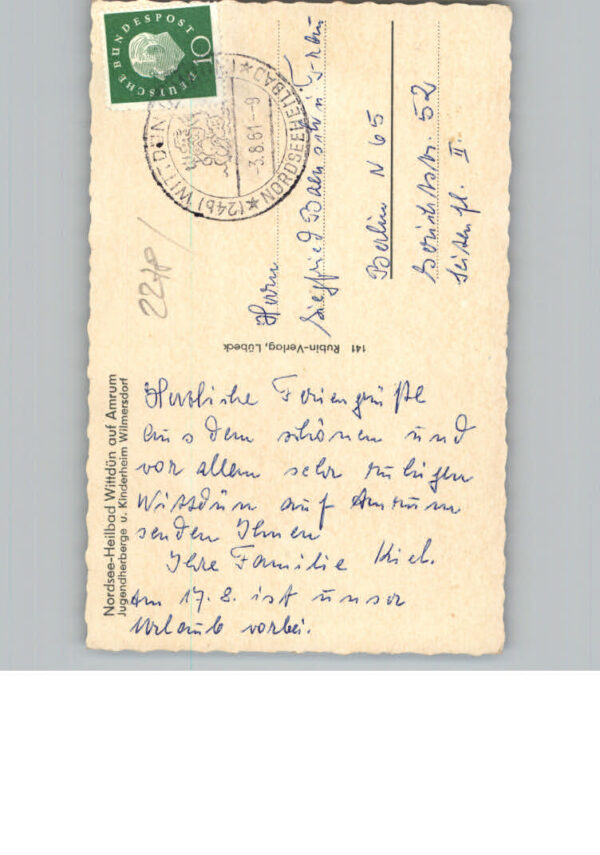 DEUTSCHE BUNDESPOST
10
(24b) WITTDÜN
NORDSEEHEILBAD
-3.8.61-9
2278
Herrn
Siegfried u. Frau
Berlin N 65
52
Seitenfl. II.
141 Rubin-Verlag, Lübeck
Nordsee-Heilbad Wittdün auf Amrum
Jugendherberge u. Kinderheim Wilmersdorf
Herzliche Feriengrüße
aus dem schönen und
vor allem sehr ruhigen
Wittdün auf Amrum
senden Ihnen
Ihre Familie Kiel.
Am 17.8. ist unser
Urlaub vorbei.